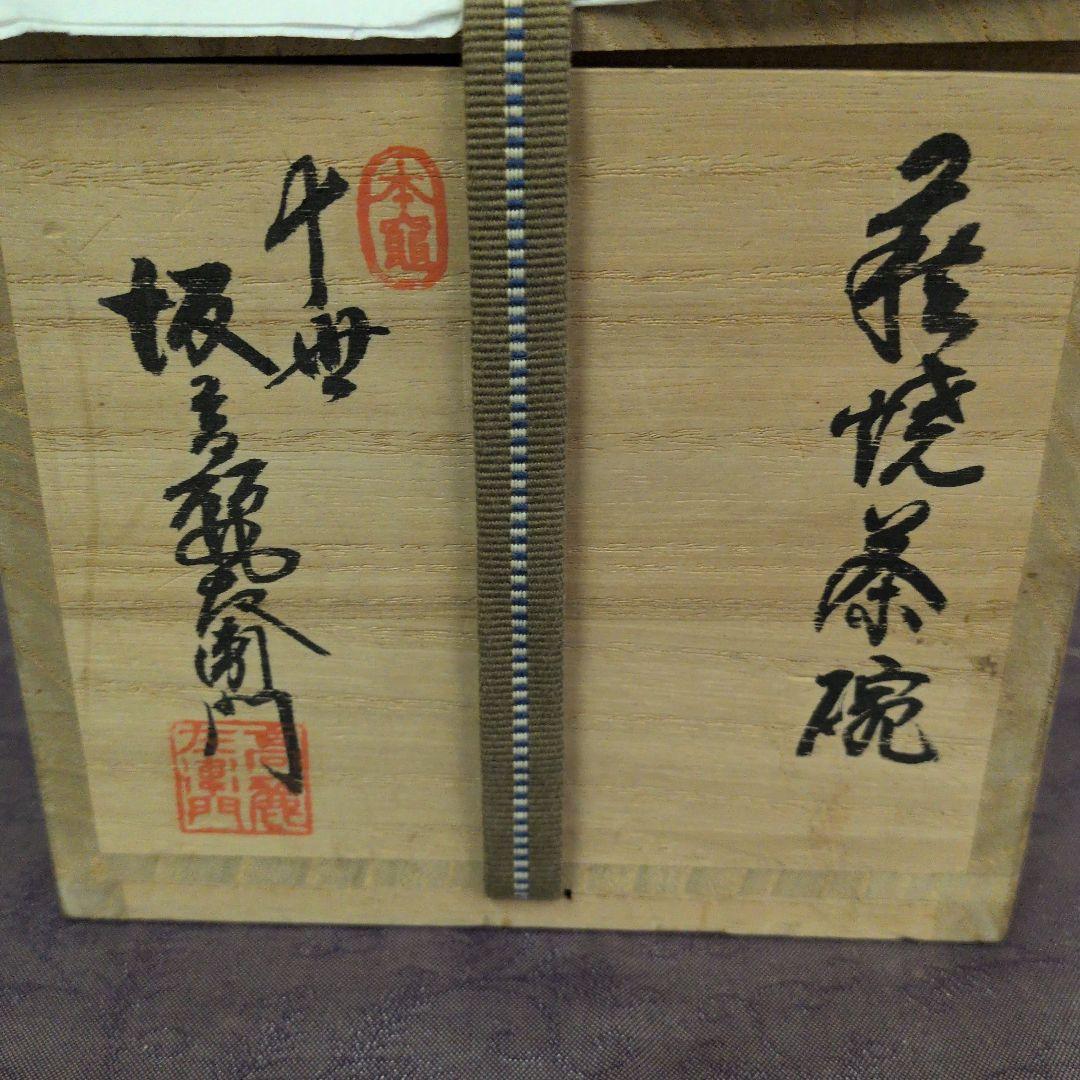 萩焼茶碗
本窯
十世
坂高麗左衛門
高麗左衛門